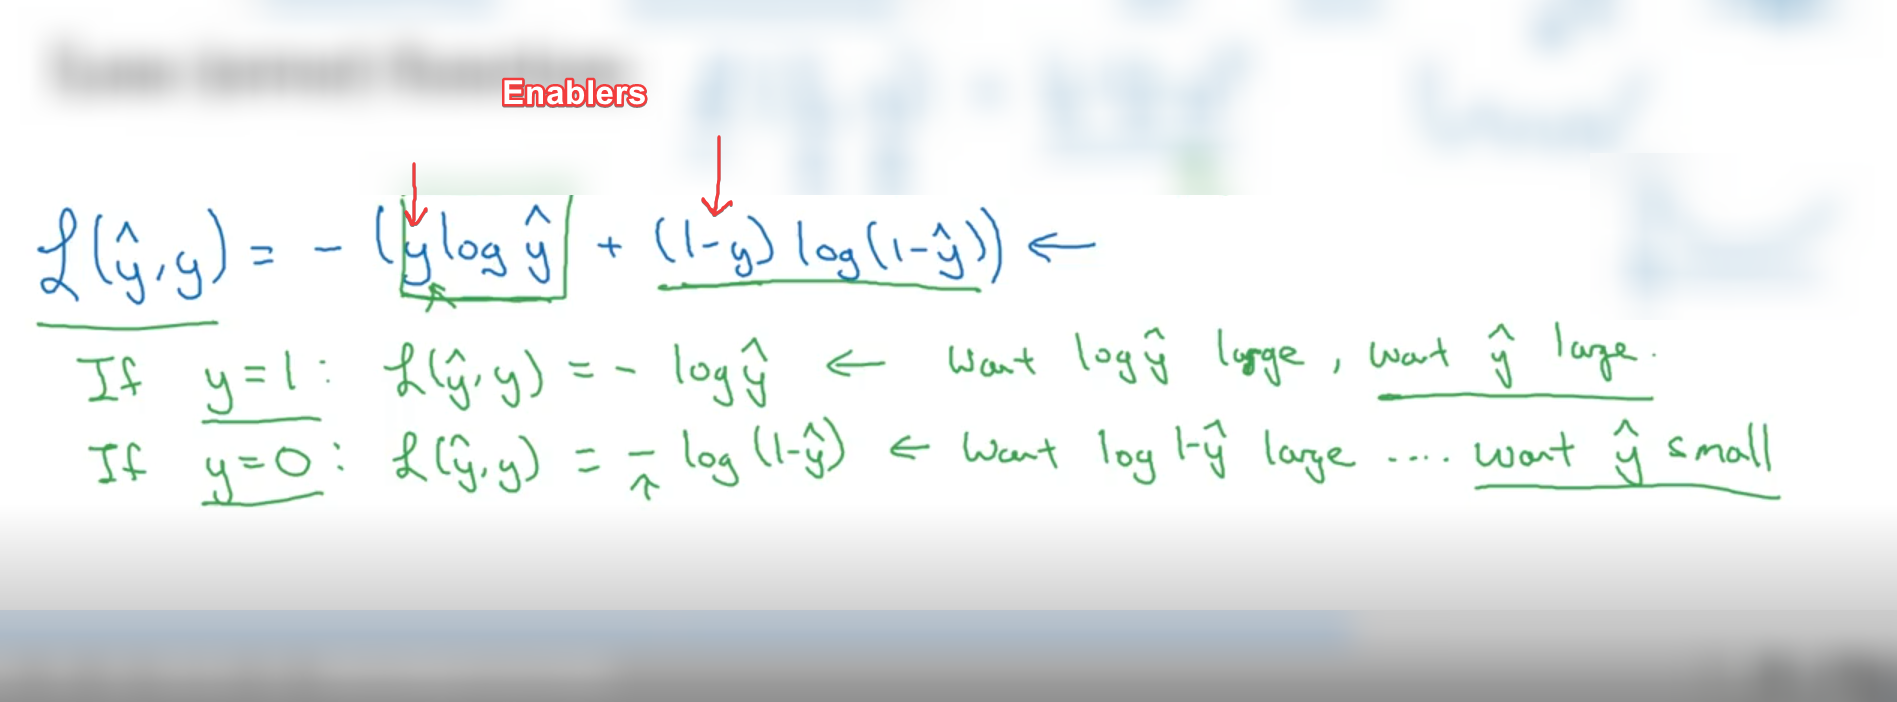 Enablers
ℒ(ŷ, y) = - (y log ŷ + (1-y) log(1-ŷ)) ←
If y=1: ℒ(ŷ, y) = - log ŷ ← Want log ŷ large, want ŷ large.
If y=0: ℒ(ŷ, y) = - log (1-ŷ) ← Want log 1-ŷ large .... want ŷ small